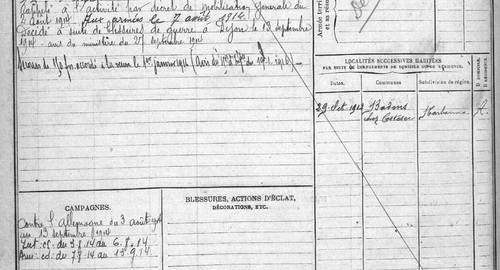 Rappelé à l'activité par décret de mobilisation Générale du
2 Août 1914. Aux armées le 7 août 1914.
Décédé à suite de blessures de guerre à Dijon le 13 septembre
1914 avis du ministère du 25 septembre 1914
Secours de 150 fr. accordé à la veuve le 1er janvier 1916 (Avis
CAMPAGNES.
Contre l'allemagne du 3 août 1914
au 13 septembre 1914
Int: cs: du 3.8.14 au 6.8.14
Arm: cd: du 7.8.14 au 13.9.14.
BLESSURES, ACTIONS D'ÉCLAT,
DÉCORATIONS, ETC.
Armée territ
et sa rése
LOCALITÉS SUCCESSIVES HABITÉES
PAR SUITE DE CHANGEMENTS DE DOMICILE OU DE RÉSIDENCE.
Dates.
Communes
Subdivision de région.
D. DOMICILE.
R. RÉSIDENCE.
29 Oct 1912
Narbonne
R.